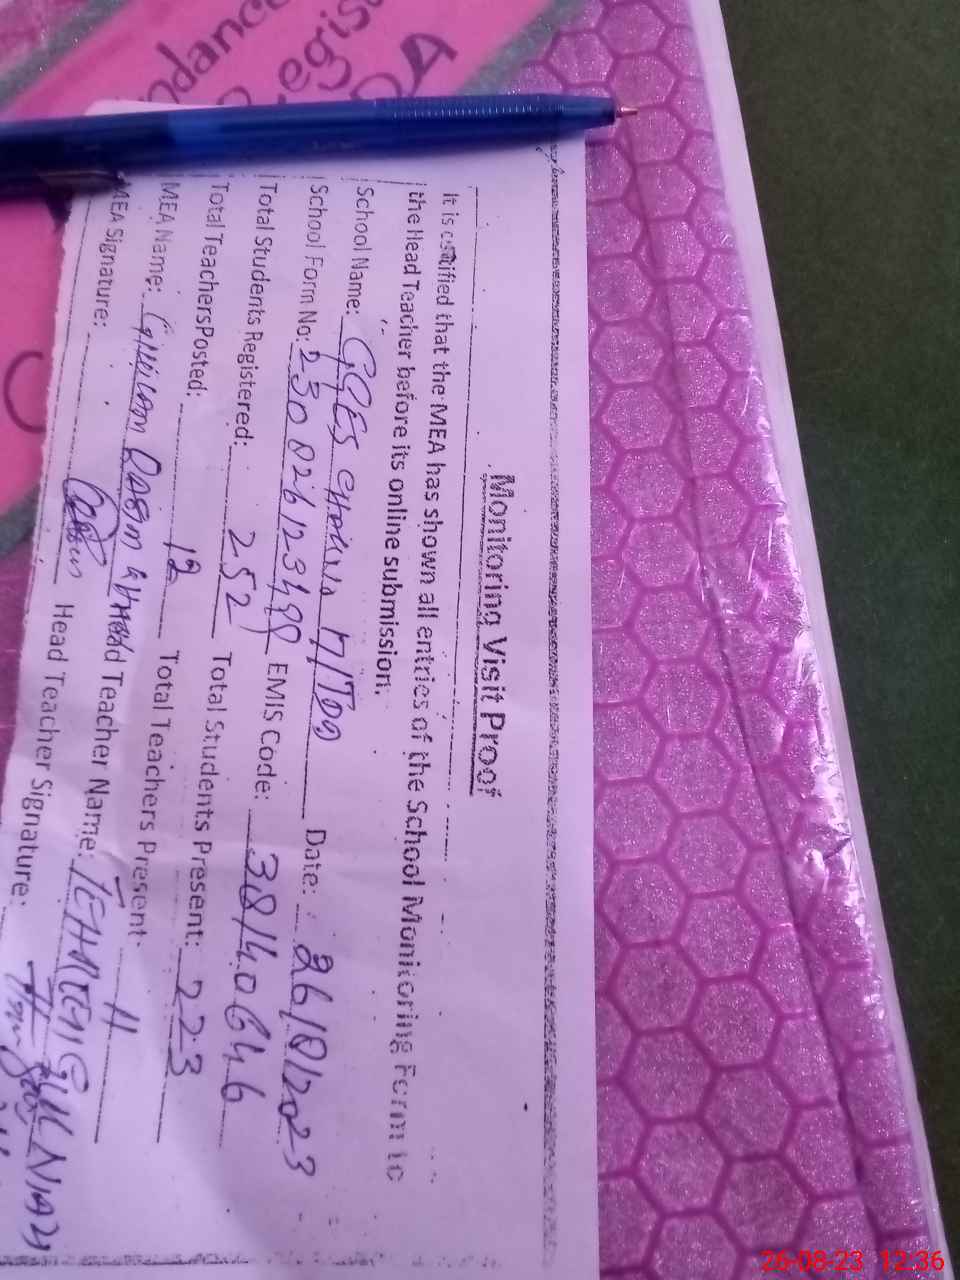 ndance
Regist
Monitoring Visit Proof
It is certified that the MEA has shown all entries of the School Monitoring Form to
the Head Teacher before its online submission.
School Name: GGES Date: 26/8/2023
School Form No: EMIS Code: 38140646
Total Students Registered: 252 Total Students Present: 223
Total Teachers Posted: 12 Total Teachers Present: 11
MEA Name: Ghulam Qasim Head Teacher Name: TEHREEM GUL NIAZI
MEA Signature: Head Teacher Signature:
26-08-23 12:36